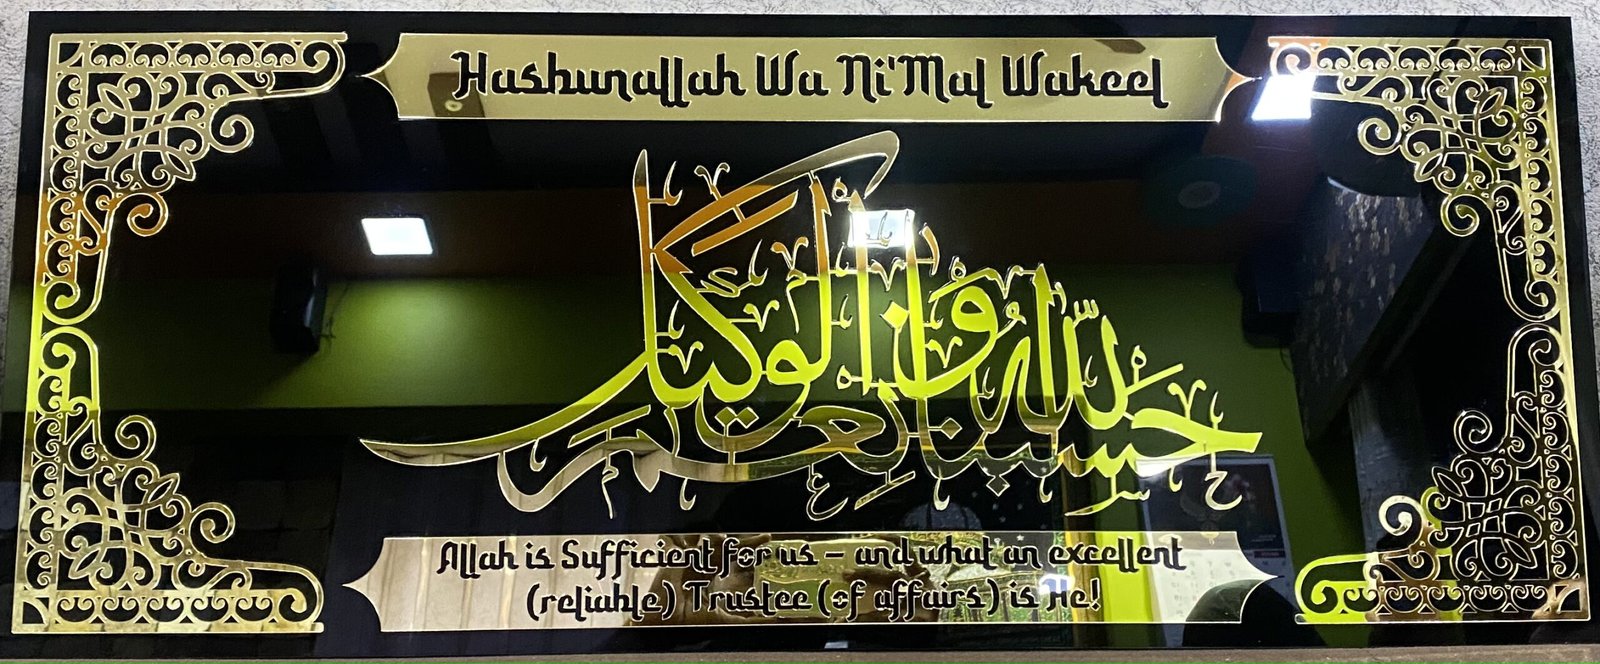 Hasbunallah Wa Ni'Mal Wakeel
حَسْبُنَا اللّٰهُ وَنِعْمَ الْوَكِيْل
Allah is Sufficient for us – and what an excellent
(reliable) Trustee (of affairs) is He!